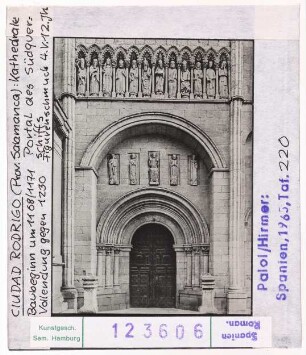 CIUDAD RODRIGO (Prov. Salamanca): Kathedrale
Baubeginn um 1168/1171 Portal des Südquer-
Vollendung gegen 1230 schiffs
Figurenschmuck 4.V.12.Jh
Palol/Hirmer:
Spanien, 1965, Taf. 220
Kunstgesch.
Sem. Hamburg
123606
Spanien
Roman.